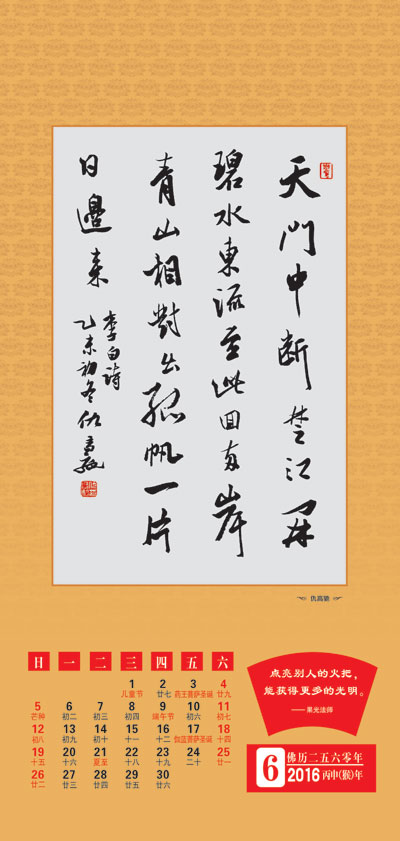 天門中断楚江開
碧水東流至此回両岸
青山相對出孤帆一片
日邊来
李白詩
乙未初冬仇高馳
仇高驰
日 一 二 三 四 五 六
1 2 3 4
儿童节 廿七 药王菩萨圣诞 廿九
5 6 7 8 9 10 11
芒种 初二 初三 初四 端午节 初六 初七
12 13 14 15 16 17 18
初八 初九 初十 十一 十二 伽蓝菩萨圣诞 十四
19 20 21 22 23 24 25
十五 十六 夏至 十八 十九 二十 廿一
26 27 28 29 30
廿二 廿三 廿四 廿五 廿六
点亮别人的火把，
能获得更多的光明。
——果光法师
6
佛历二五六零年
2016 丙申(猴)年